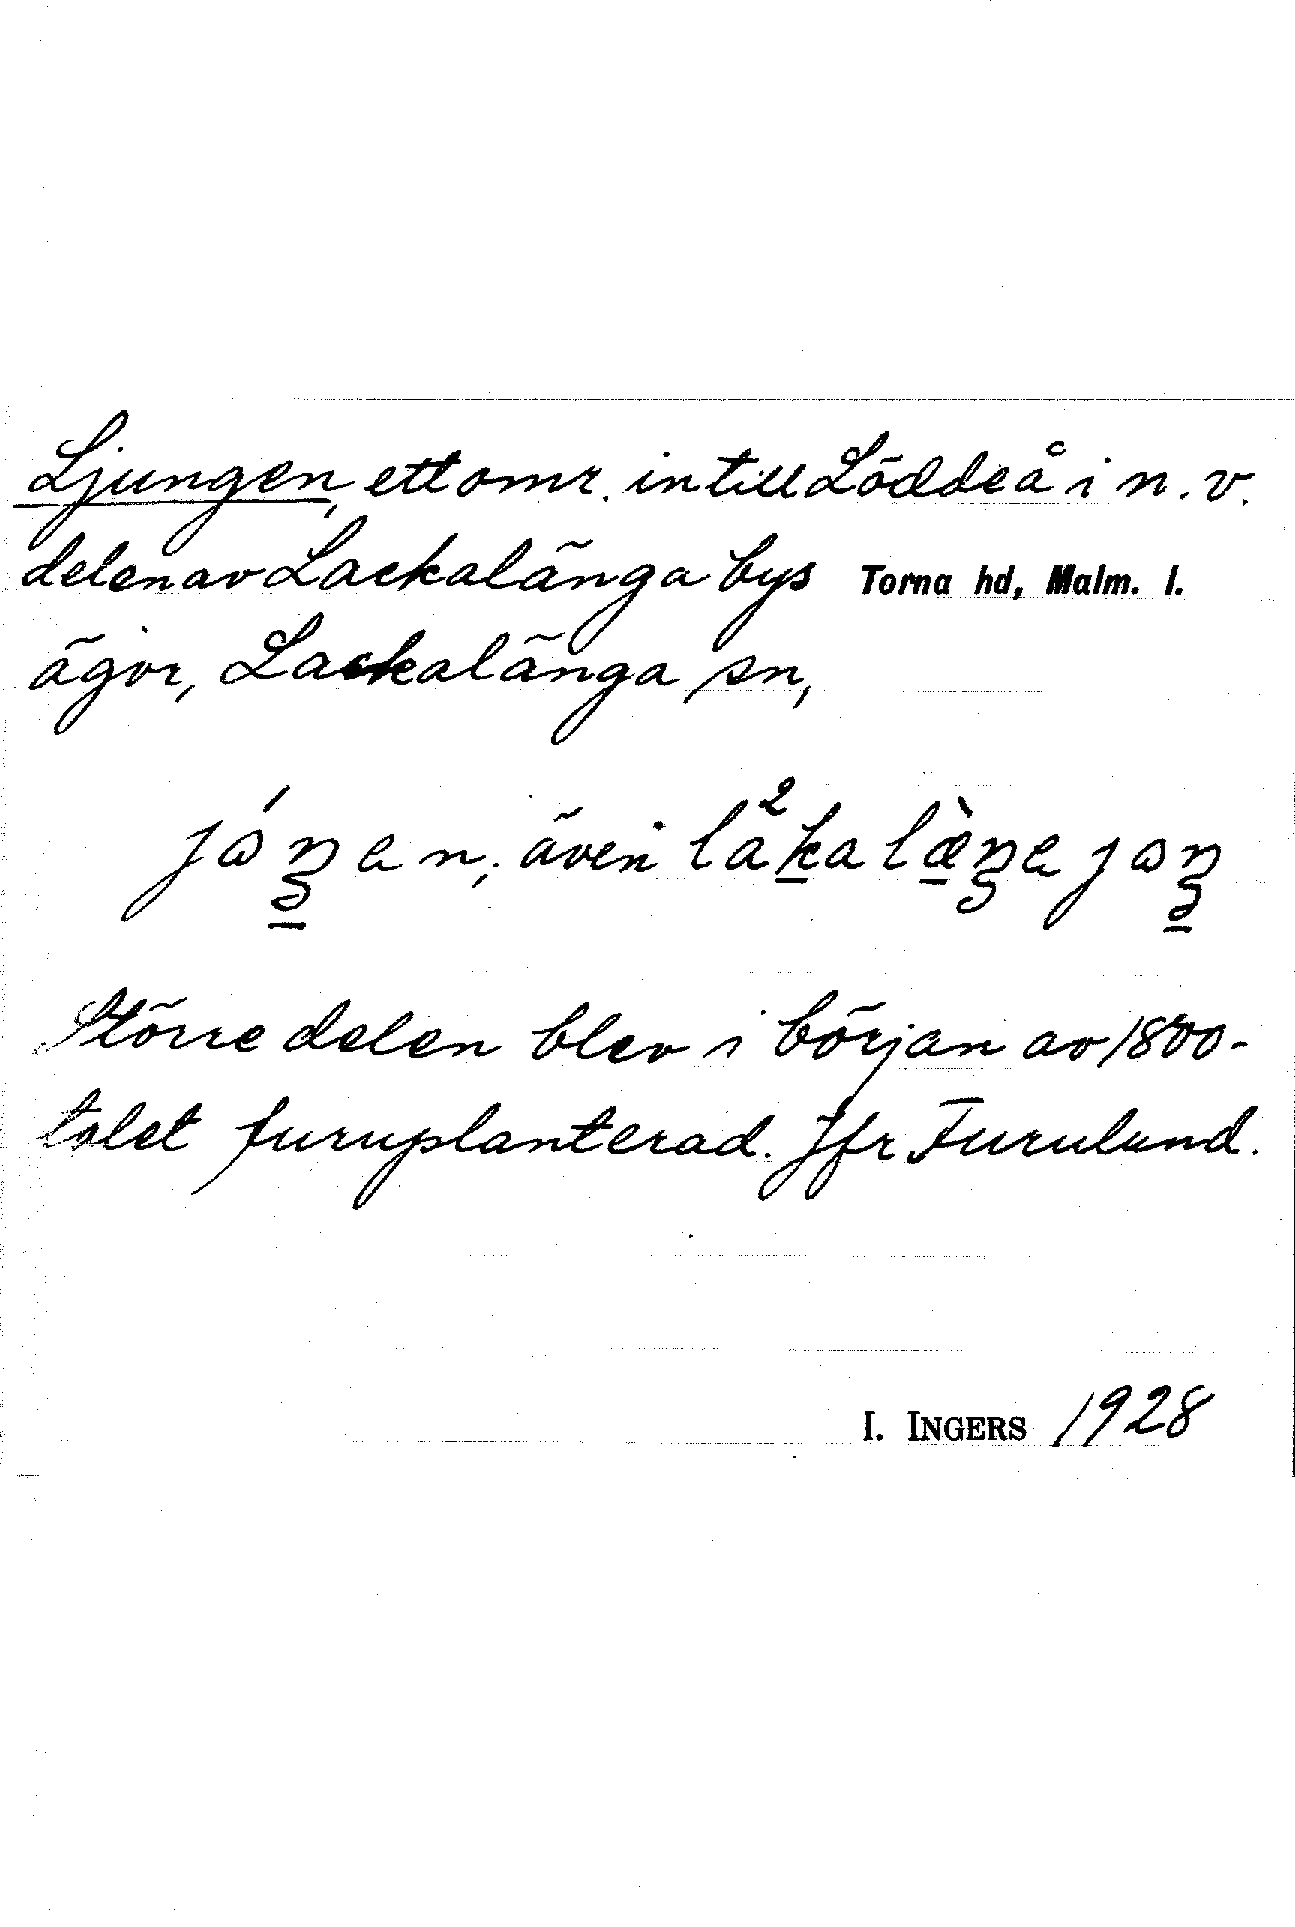 Ljungen, ett omr. intill Löddeå i n. v.
delen av Lackalänga bys Torna hd, Malm. l.
ägor, Lackalänga sn,
även
Större delen blev i början av 1800-
talet furuplanterad. Jfr Furulund.
I. INGERS 1928